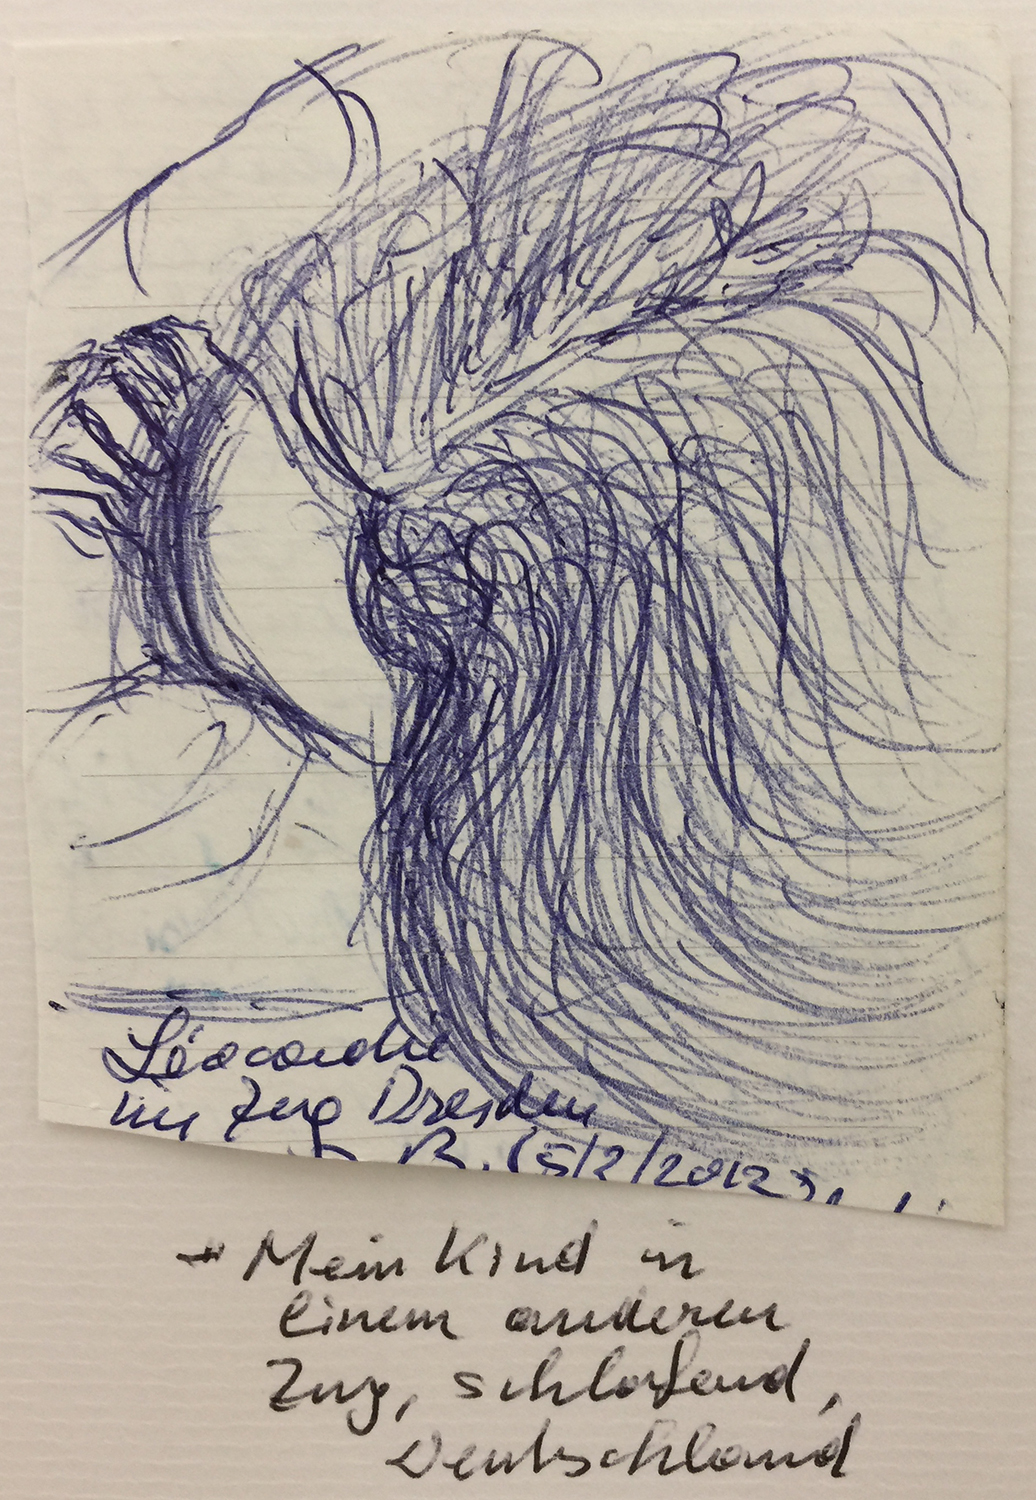 Léocardie
im Zug Dresden
B. (5/2/2012)
→ Mein Kind in
einem anderen
Zug, schlafend,
Deutschland